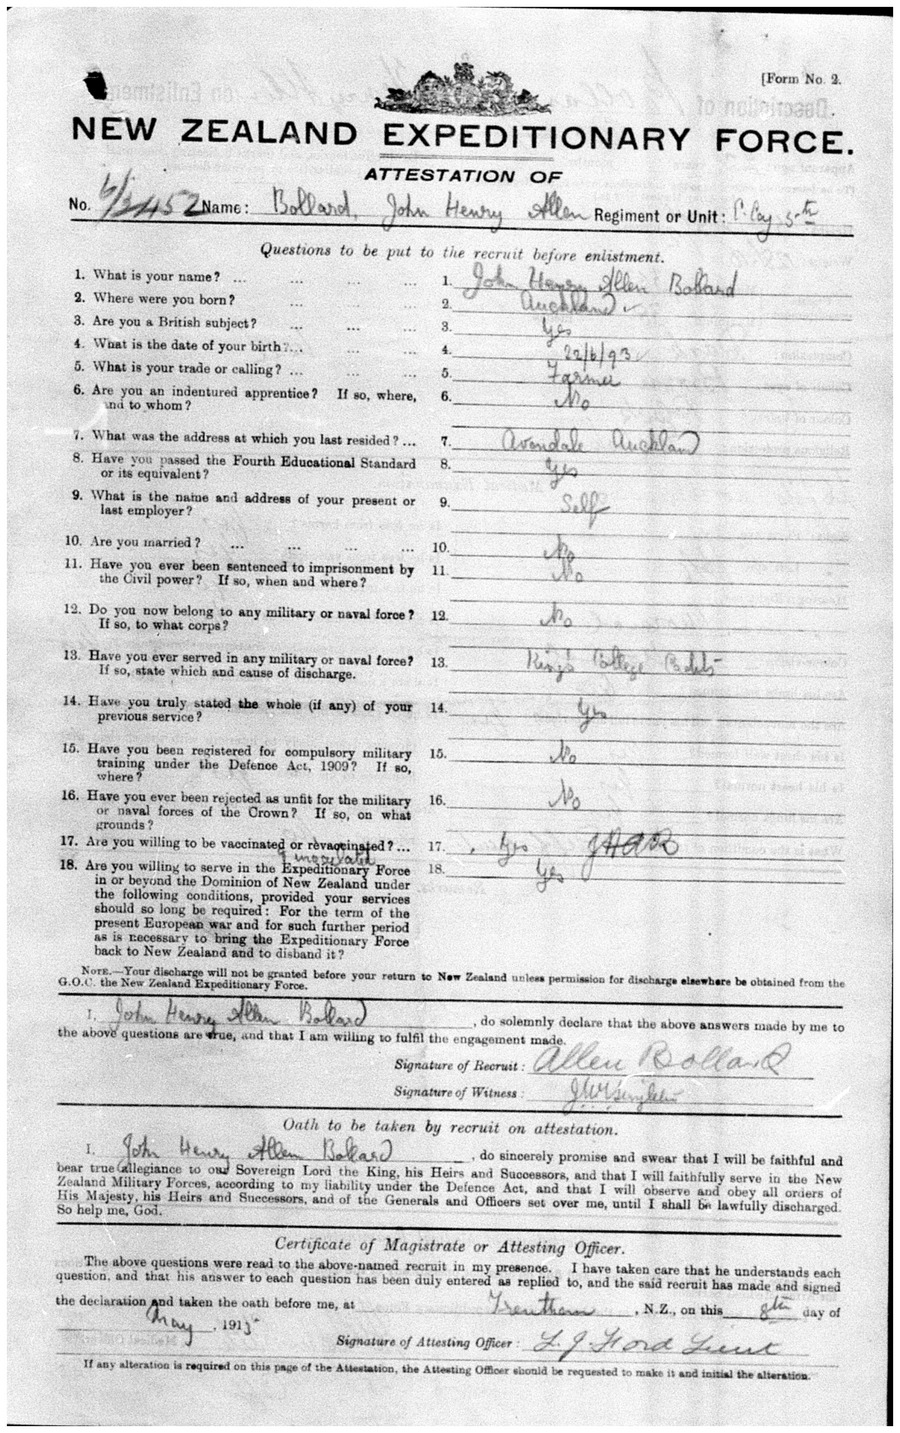 [Form No. 2.
NEW ZEALAND EXPEDITIONARY FORCE.
ATTESTATION OF
No. 6/2452 Name: Bollard, John Henry Allen Regiment or Unit: C. Coy 5th
Questions to be put to the recruit before enlistment.
1. What is your name? ... ... ... ... 1. John Henry Allen Bollard
2. Where were you born? ... ... ... 2. Auckland
3. Are you a British subject? ... ... ... 3. Yes
4. What is the date of your birth?... ... ... 4. 22/6/93
5. What is your trade or calling? ... ... ... 5. Farmer
6. Are you an indentured apprentice? If so, where, 6. No
and to whom?
7. What was the address at which you last resided? ... 7. Avondale Auckland
8. Have you passed the Fourth Educational Standard 8. Yes
or its equivalent?
9. What is the name and address of your present or 9. Self
last employer?
10. Are you married? ... ... ... ... 10. No
11. Have you ever been sentenced to imprisonment by 11. No
the Civil power? If so, when and where?
12. Do you now belong to any military or naval force? 12. No
If so, to what corps?
13. Have you ever served in any military or naval force? 13. King's College Cadets
If so, state which and cause of discharge.
14. Have you truly stated the whole (if any) of your 14. Yes
previous service?
15. Have you been registered for compulsory military 15. No
training under the Defence Act, 1909? If so,
where?
16. Have you ever been rejected as unfit for the military 16. No
or naval forces of the Crown? If so, on what
grounds?
17. Are you willing to be vaccinated or revaccinated? ... 17. Yes JHAB
& inoculated
18. Are you willing to serve in the Expeditionary Force 18. Yes
in or beyond the Dominion of New Zealand under
the following conditions, provided your services
should so long be required: For the term of the
present European war and for such further period
as is necessary to bring the Expeditionary Force
back to New Zealand and to disband it?
NOTE.—Your discharge will not be granted before your return to New Zealand unless permission for discharge elsewhere be obtained from the
G.O.C. the New Zealand Expeditionary Force.
I, John Henry Allen Bollard, do solemnly declare that the above answers made by me to
the above questions are true, and that I am willing to fulfil the engagement made.
Signature of Recruit: Allen Bollard
Signature of Witness: J W Singleton
Oath to be taken by recruit on attestation.
I, John Henry Allen Bollard, do sincerely promise and swear that I will be faithful and
bear true allegiance to our Sovereign Lord the King, his Heirs and Successors, and that I will faithfully serve in the New
Zealand Military Forces, according to my liability under the Defence Act, and that I will observe and obey all orders of
His Majesty, his Heirs and Successors, and of the Generals and Officers set over me, until I shall be lawfully discharged.
So help me, God.
Certificate of Magistrate or Attesting Officer.
The above questions were read to the above-named recruit in my presence. I have taken care that he understands each
question, and that his answer to each question has been duly entered as replied to, and the said recruit has made and signed
the declaration and taken the oath before me, at Trentham, N.Z., on this 8th day of
May, 1915
Signature of Attesting Officer: L. J. Ford Lieut
If any alteration is required on this page of the Attestation, the Attesting Officer should be requested to make it and initial the alteration.